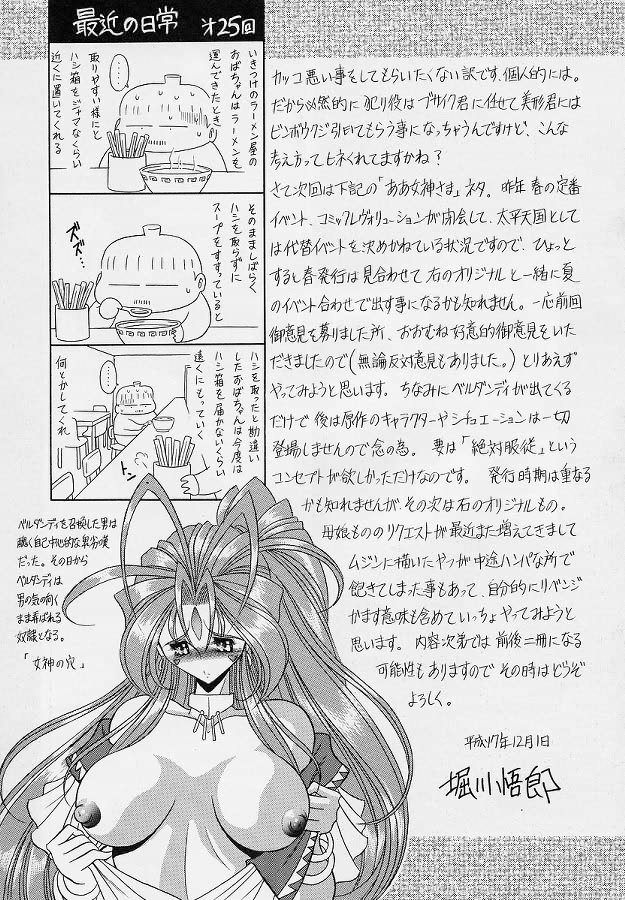 最近の日常 才25回
いきつけのラーメン屋の
おばちゃんはラーメンを
運んできたとき
取りやすい様にと
ハシ箱をジャマなくらい
近くに置いてくれる
・・・・
そのまましばらく
ハシを取らずに
スープをすすっていると
ズズ…
ハシを取ったと勘違い
したおばちゃんは今度は
ハシ箱を届かないくらい
遠くにもっていく
何とかしてくれ
・・・・
トン
カッコ悪い事をしてもらいたくない訳です、個人的には。
だから必然的に犯り役はブサイク君に任せて美形君には
ビンボウクジ引いてもらう事になっちゃうんですけど、こんな
考え方ってヒネくれてますかね?
さて次回は下記の「ああ女神さま」ネタ。昨年春の定番
イベント、コミックレヴォリューションが閉会して、太平天国として
は代替イベントを決めかねている状況ですので、ひょっと
すると春発行は見合わせて右のオリジナルと一緒に夏
のイベント合わせで出す事になるかも知れません。一応前回
御意見を募りました所、おおむね好意的御意見をいた
だきましたので(無論反対意見もありました。)とりあえず
やってみようと思います。ちなみにベルダンディが出てくる
だけで後は原作のキャラクターやシチュエーションは一切
登場しませんので念の為。要は「絶対服従」という
コンセプトが欲しかっただけなのです。発行時期は重なる
かも知れませんが、その次は右のオリジナルもの。
母娘もののリクエストが最近また増えてきまして
ムジンに描いたやつが中途ハンパな所で
飽きてしまった事もあって、自分的にリベンジ
かます意味も含めていっちょやってみようと
思います。内容次第では前後二冊になる
可能性もありますのでその時はどうぞ
よろしく。
平成17年12月1日
堀川悟郎
ベルダンディを召喚した男は
醜く自己中心的な異常嗜
だった。その日から
ベルダンディは
男の気の向く
まま弄ばれる
奴隷となる。
「女神の穴」